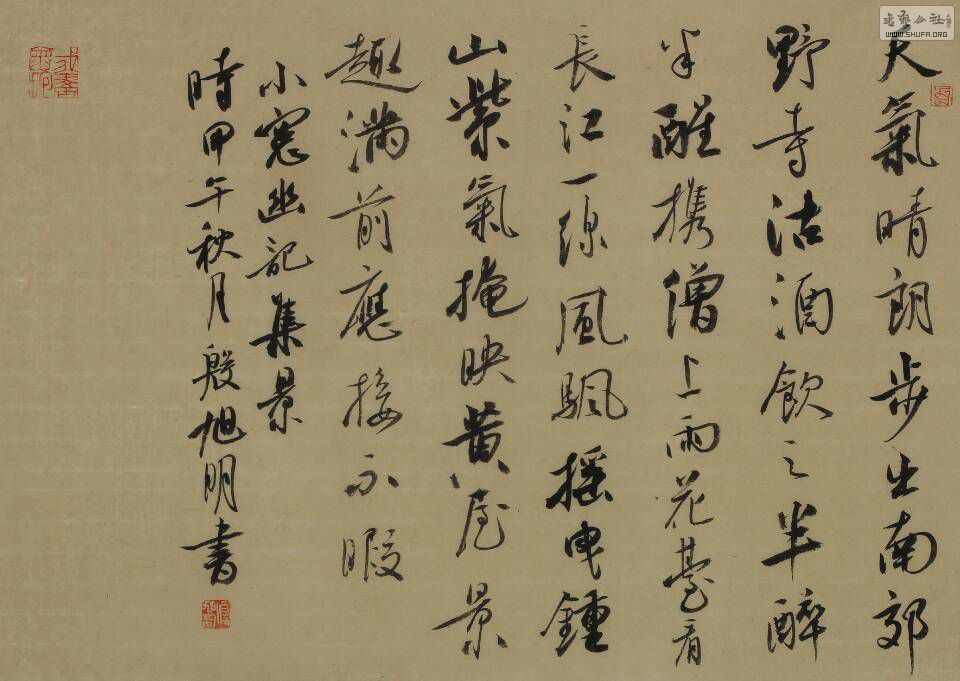 天氣晴朗步出南郊
野寺沽酒飲之半醉
半醒携僧上雨花臺看
長江一線風颿摇曳鍾
山紫氣掩映黄屋景
趣满前應接不暇
小窓幽記集景
時甲午秋月殷旭明書
WWW.SHUFA.ORG